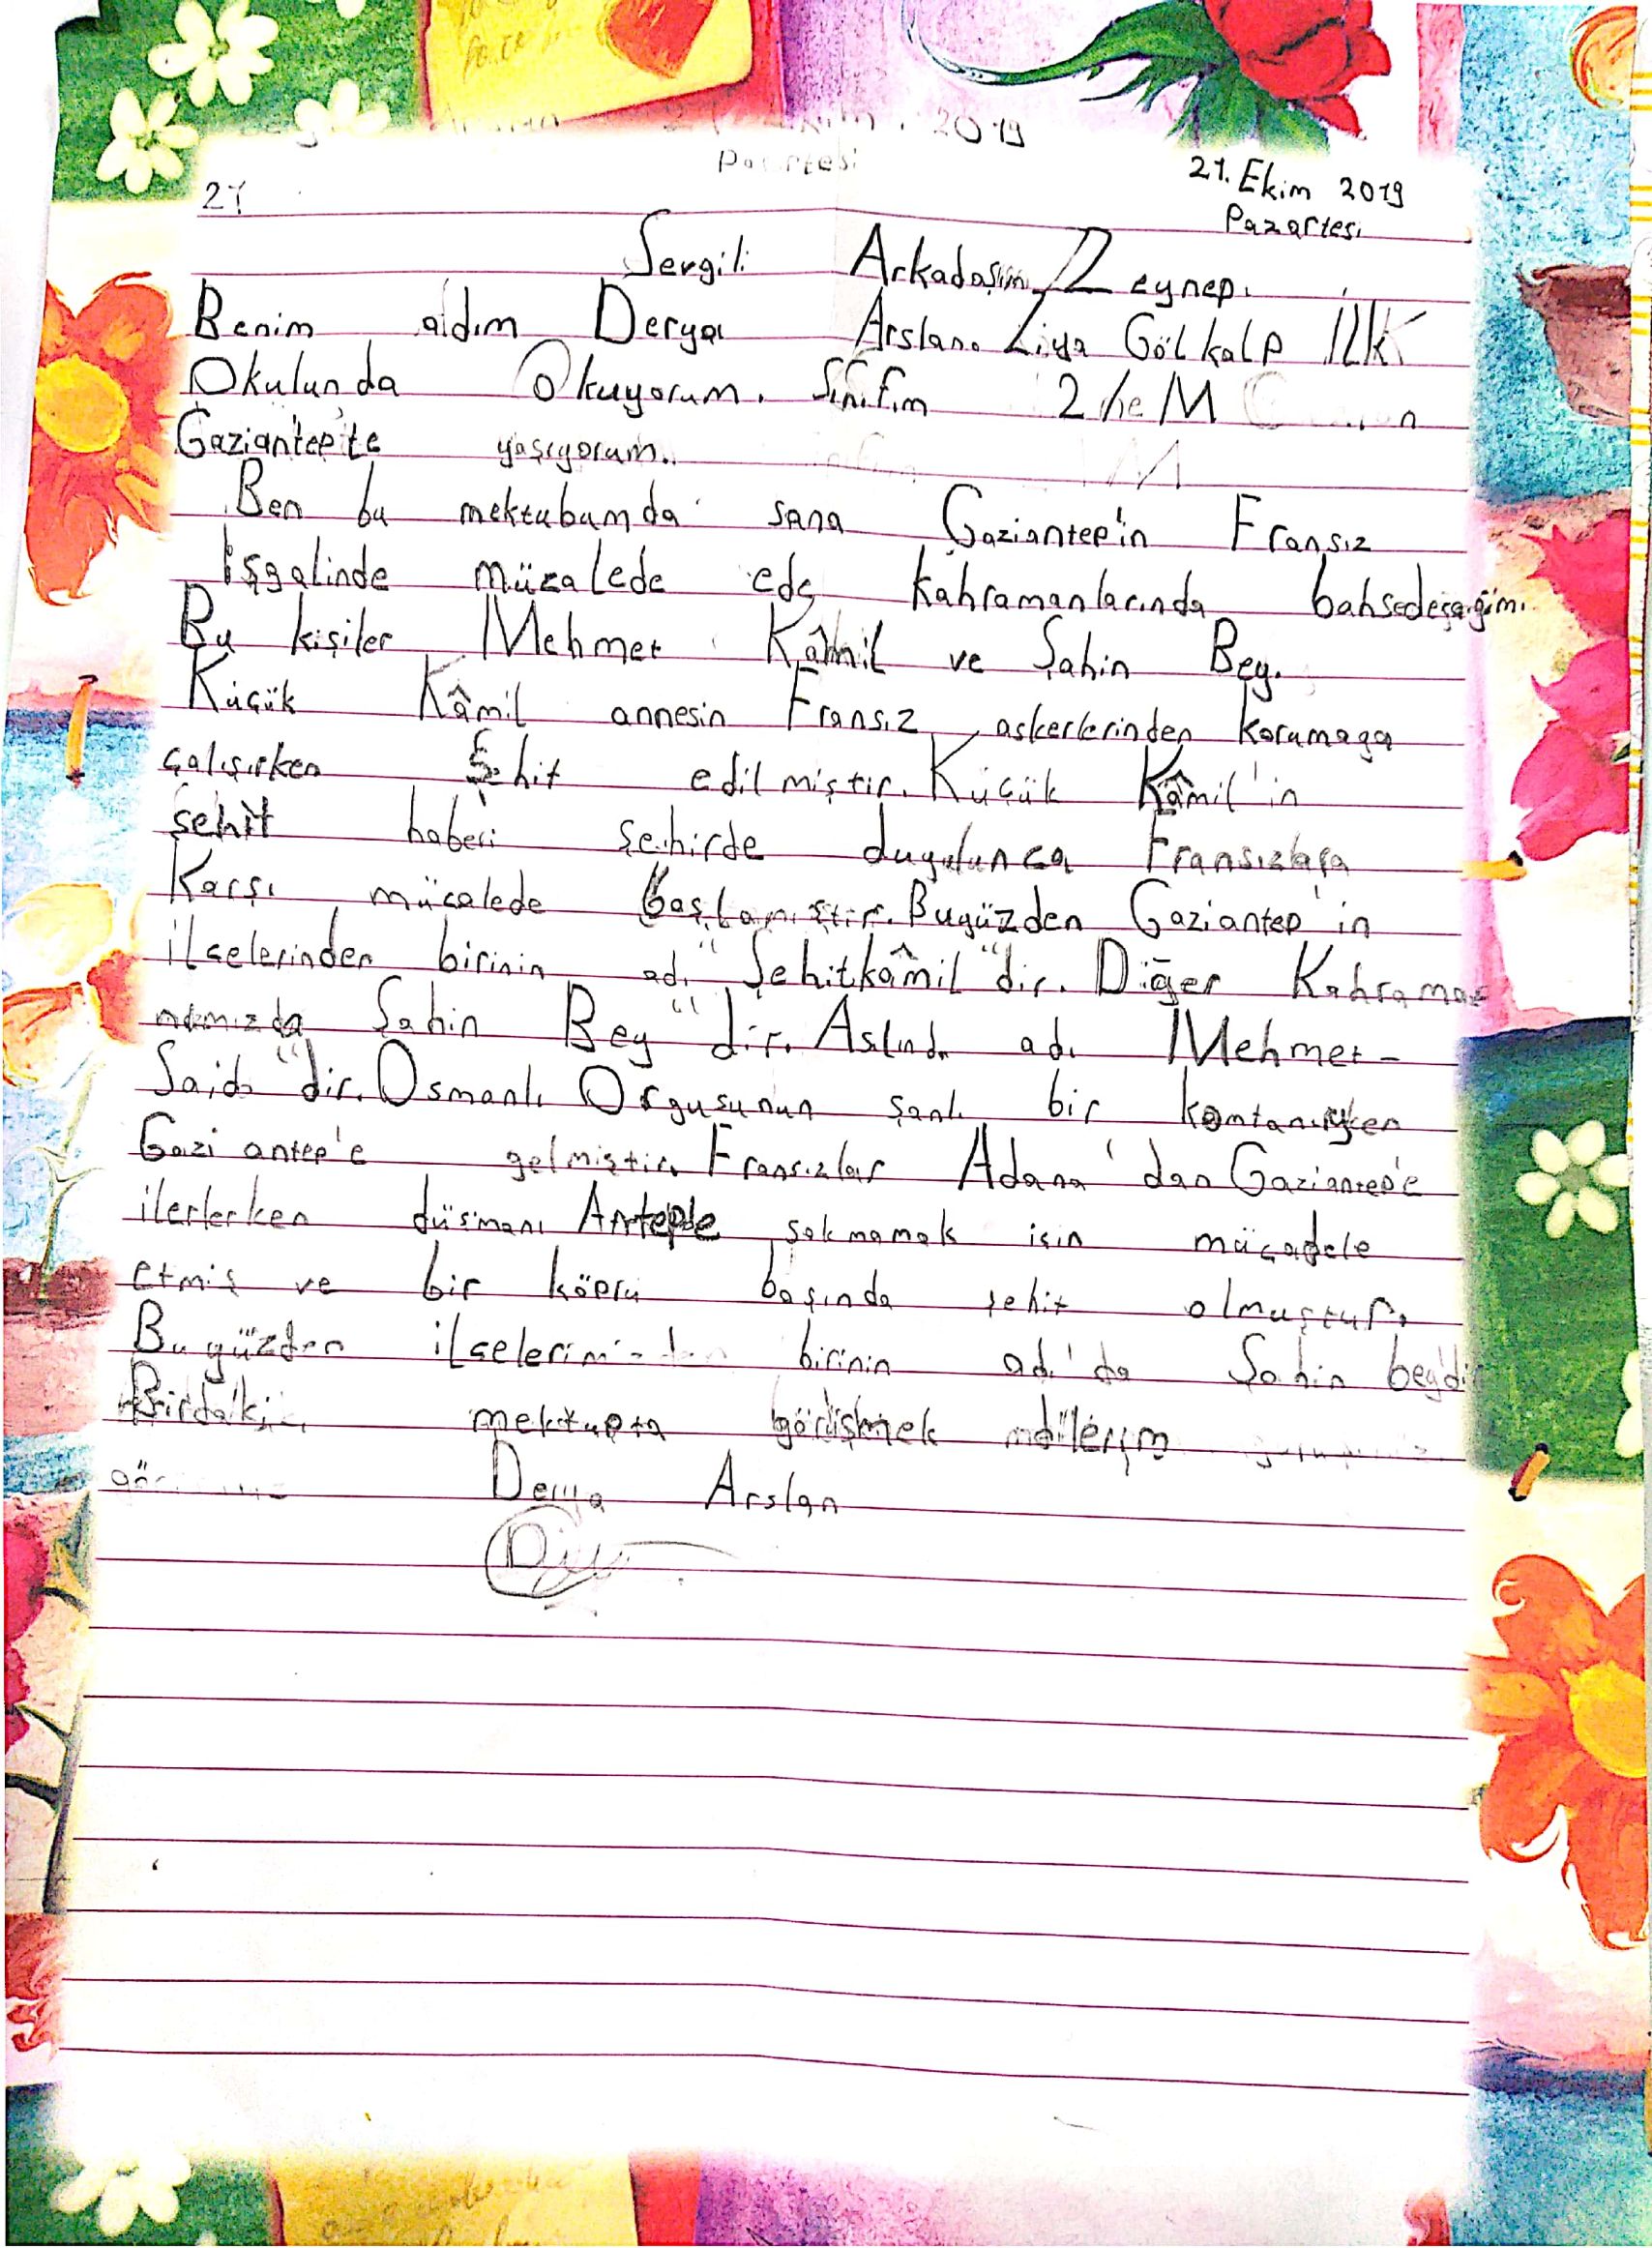 2019
Pazartesi
21. Ekim 2019
Pazartesi
21
Sevgili Arkadaşım Zeynep.
Benim adım Derya Arslan. Ziya Gölkalp ILK
Okulunda Okuyorum. Sınıfım 2/he M
Gaziantep'te yaşıyorum.
Ben bu mektubumda sana Gaziantep'in Fransız
İşgalinde müzalede ede kahramanlarında bahsedeçeğim.
Bu kişiler Mehmet Kâmil ve Şahin Bey.
Küçük Kâmil annesin Fransız askerlerinden korumaga
çalışırken Şehit edilmiştir. Küçük Kâmil'in
şehit haberi şehirde duyulunca Fransızlara
Karşı mücalede başlamıştır. Buyüzden Gaziantep'in
ilçelerinden birinin adı "Şehitkâmil"dir. Diğer Kahraman
nımızda Şahin Bey"dir. Aslında adı Mehmet-
Said"dir. Osmanlı Orgusunun şanlı bir komtanıyken
Gaziantep'e gelmiştir. Fransızlar Adana'dan Gaziantep'e
ilerlerken düşmanı sokmamak için müçadele
etmiş ve bir köprü başında şehit olmuştur.
Bu yüzden ilçelerimizden birinin adı'da Şahin bey'dir
Birdaki mektupta görüşmek
Derya Arslan